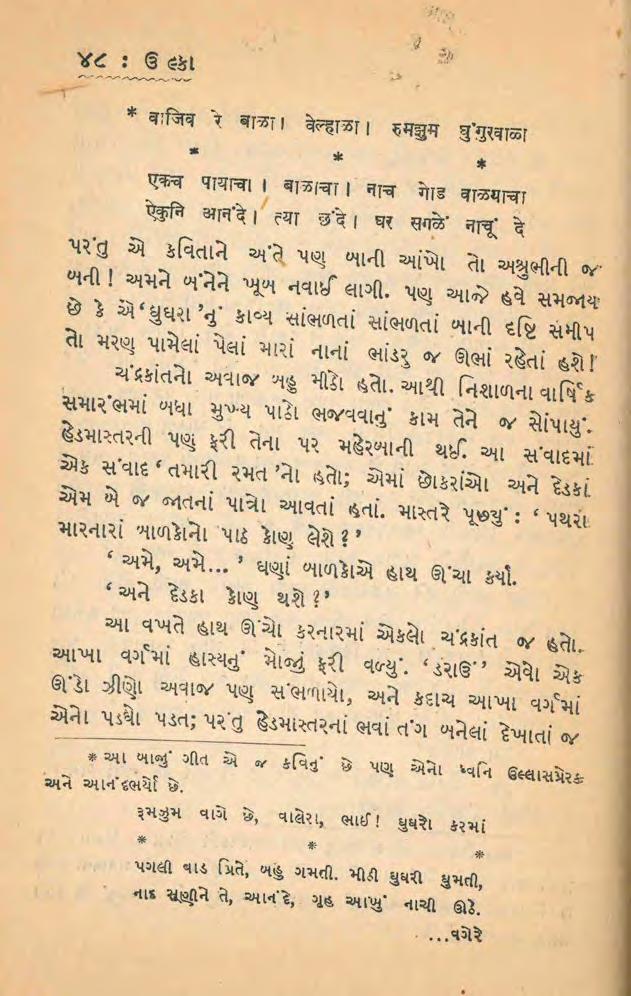 ૪૮ : ઉ લ્કા
* वाजिव रे बाळा। वेल्हाळा। रुमझुम घुंगुरवाळा
* * *
एकच पायाचा। बाळाचा। नाच गोड वाळयाचा
ऐकुनि आनंदे। त्या छंदे। घर सगळें नाचूं दे
પરંતુ એ કવિતાને અંતે પણ બાની આંખો તો અશ્રુભીની જ
બની! અમને બંનેને ખૂબ નવાઈ લાગી. પણ આજે હવે સમજાય
છે કે એ ‘ઘુઘરા’નું કાવ્ય સાંભળતાં સાંભળતાં બાની દૃષ્ટિ સમીપ
તો મરણ પામેલાં પેલાં મારાં નાનાં ભાંડરુ જ ઊભાં રહેતાં હશે!
ચંદ્રકાંતનો અવાજ બહુ મીઠો હતો. આથી નિશાળના વાર્ષિક
સમારંભમાં બધા મુખ્ય પાઠો ભજવવાનું કામ તેને જ સોંપાયું.
હેડમાસ્તરની પણ ફરી તેના પર મહેરબાની થઈ. આ સંવાદમાં
એક સંવાદ ‘તમારી રમત’નો હતો; એમાં છોકરાંઓ અને દેડકાં
એમ બે જ જાતનાં પાત્રો આવતાં હતાં. માસ્તરે પૂછયું : ‘પથરા
મારનારાં બાળકોનો પાઠ કોણ લેશે?’
‘અમે, અમે...’ ઘણાં બાળકોએ હાથ ઊંચા કર્યા.
‘અને દેડકા કોણ થશે?’
આ વખતે હાથ ઊંચો કરનારમાં એકલો ચંદ્રકાંત જ હતો.
આખા વર્ગમાં હાસ્યનું મોજું ફરી વળ્યું. ‘ડરાઉં’ એવો એક
ઊંડો ઝીણો અવાજ પણ સંભળાયો, અને કદાચ આખા વર્ગમાં
એનો પડઘો પડત; પરંતુ હેડમાસ્તરનાં ભવાં તંગ બનેલાં દેખાતાં જ
* આ બાજુ ગીત એ જ કવિનું છે પણ એનો ધ્વનિ ઉલ્લાસપ્રેરક
અને આનંદભર્યો છે.
રૂમઝુમ વાગે છે, વાલેરા, ભાઈ! ઘુઘરો કરમાં
* * *
પગલી વાડ પ્રિતે, બહુ ગમતી. મીઠી ઘુઘરી ઘુમતી,
નાદ સૂણીને તે, આનંદે, ગૃહ આખું નાચી ઊઠે.
...વગેરે